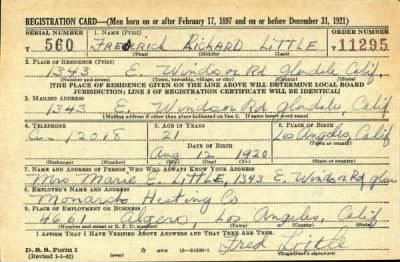 REGISTRATION CARD—(Men born on or after February 17, 1897 and on or before December 31, 1921)
SERIAL NUMBER 1. NAME (Print) ORDER NUMBER
T 560 FREDERICK RICHARD LITTLE T 11295
(First) (Middle) (Last)
2. PLACE OF RESIDENCE (Print)
1343 E. Windsor Rd Glendale Calif.
(Number and street) (Town, township, village, or city) (County) (State)
[THE PLACE OF RESIDENCE GIVEN ON THE LINE ABOVE WILL DETERMINE LOCAL BOARD
JURISDICTION; LINE 2 OF REGISTRATION CERTIFICATE WILL BE IDENTICAL]
3. MAILING ADDRESS
1343 E. Windsor Rd Glendale Calif
[Mailing address if other than place indicated on line 2. If same insert word same]
4. TELEPHONE 5. AGE IN YEARS 6. PLACE OF BIRTH
12018 21 Los Angeles, Calif
DATE OF BIRTH
Aug 12 1920
(Exchange) (Number) (Mo.) (Day) (Yr.) (State or country)
7. NAME AND ADDRESS OF PERSON WHO WILL ALWAYS KNOW YOUR ADDRESS
Mrs Marie E. LITTLE, 1343 E. Windsor Rd Glen
8. EMPLOYER'S NAME AND ADDRESS
Monarch Heating Co
9. PLACE OF EMPLOYMENT OR BUSINESS
4661 Algers Los Angeles, Calif
(Number and street or R. F. D. number) (Town) (County) (State)
I AFFIRM THAT I HAVE VERIFIED ABOVE ANSWERS AND THAT THEY ARE TRUE.
Fred Little
D. S. S. Form 1
(Revised 1-1-42) (Registrant's signature)